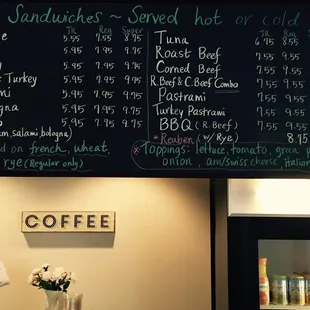 Sandwiches ~ Served hot or cold
JR Reg Super
5.55 7.55 8.75
5.95 7.95 9.75
5.95 7.95 9.75
Turkey 5.95 7.95 9.75
5.95 7.95 9.75
5.95 7.95 9.75
5.95 7.95 9.75
salami, bologna)
on french, wheat,
rye (Regular only)
JR. Reg.
Tuna 6.75 8.55
Roast Beef 7.55 9.55
Corned Beef 7.55 9.55
R. Beef & C. Beef Combo 7.55 9.55
Pastrami 7.55 9.55
Turkey Pastrami 7.55 9.55
BBQ (R. Beef) 7.55 9.55
*Reuben (w/ Rye) 8.95
*Toppings: lettuce, tomato, green
onion, am/swiss cheese, Italian
COFFEE